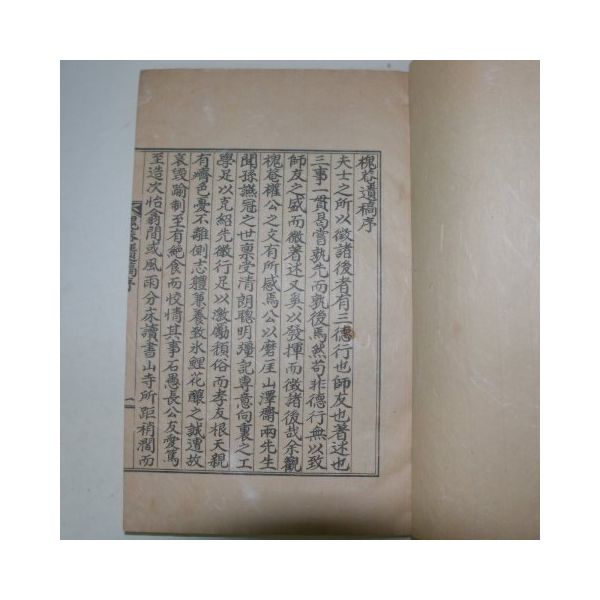 槐菴遺稿序
夫士之所以徵諸後者有三德行也師友也著述也
三事一貫曷嘗孰先而孰後焉然苟非德行無以致
師友之盛而微著述又奚以發揮而徵諸後哉余觀
槐菴權公之文有所感焉公以磨厓山澤齋兩先生
聞孫襲冠之世禀受清朗聰明彊記專意向裏之工
學足以克紹先徽行足以激勵頹俗而孝友根天親
有癠色憂不離側志軆兼養致氷鯉花釀之誠遭故
哀毁踰制至有絶食而恔情其事石愚長公友愛篤
至造次怡翕間或風雨分床讀書山寺所距稍濶而
槐菴遺稿序
一